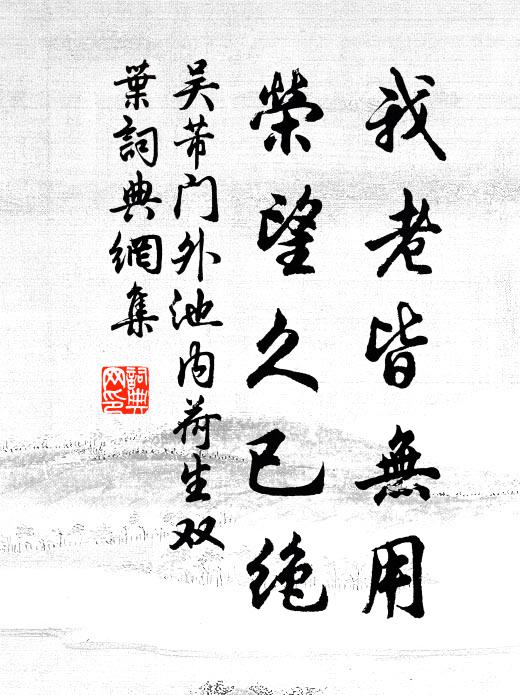 我老皆無用
榮望久已絶
吴芾门外池内荷生双
葉詞典網集
詞典
网印